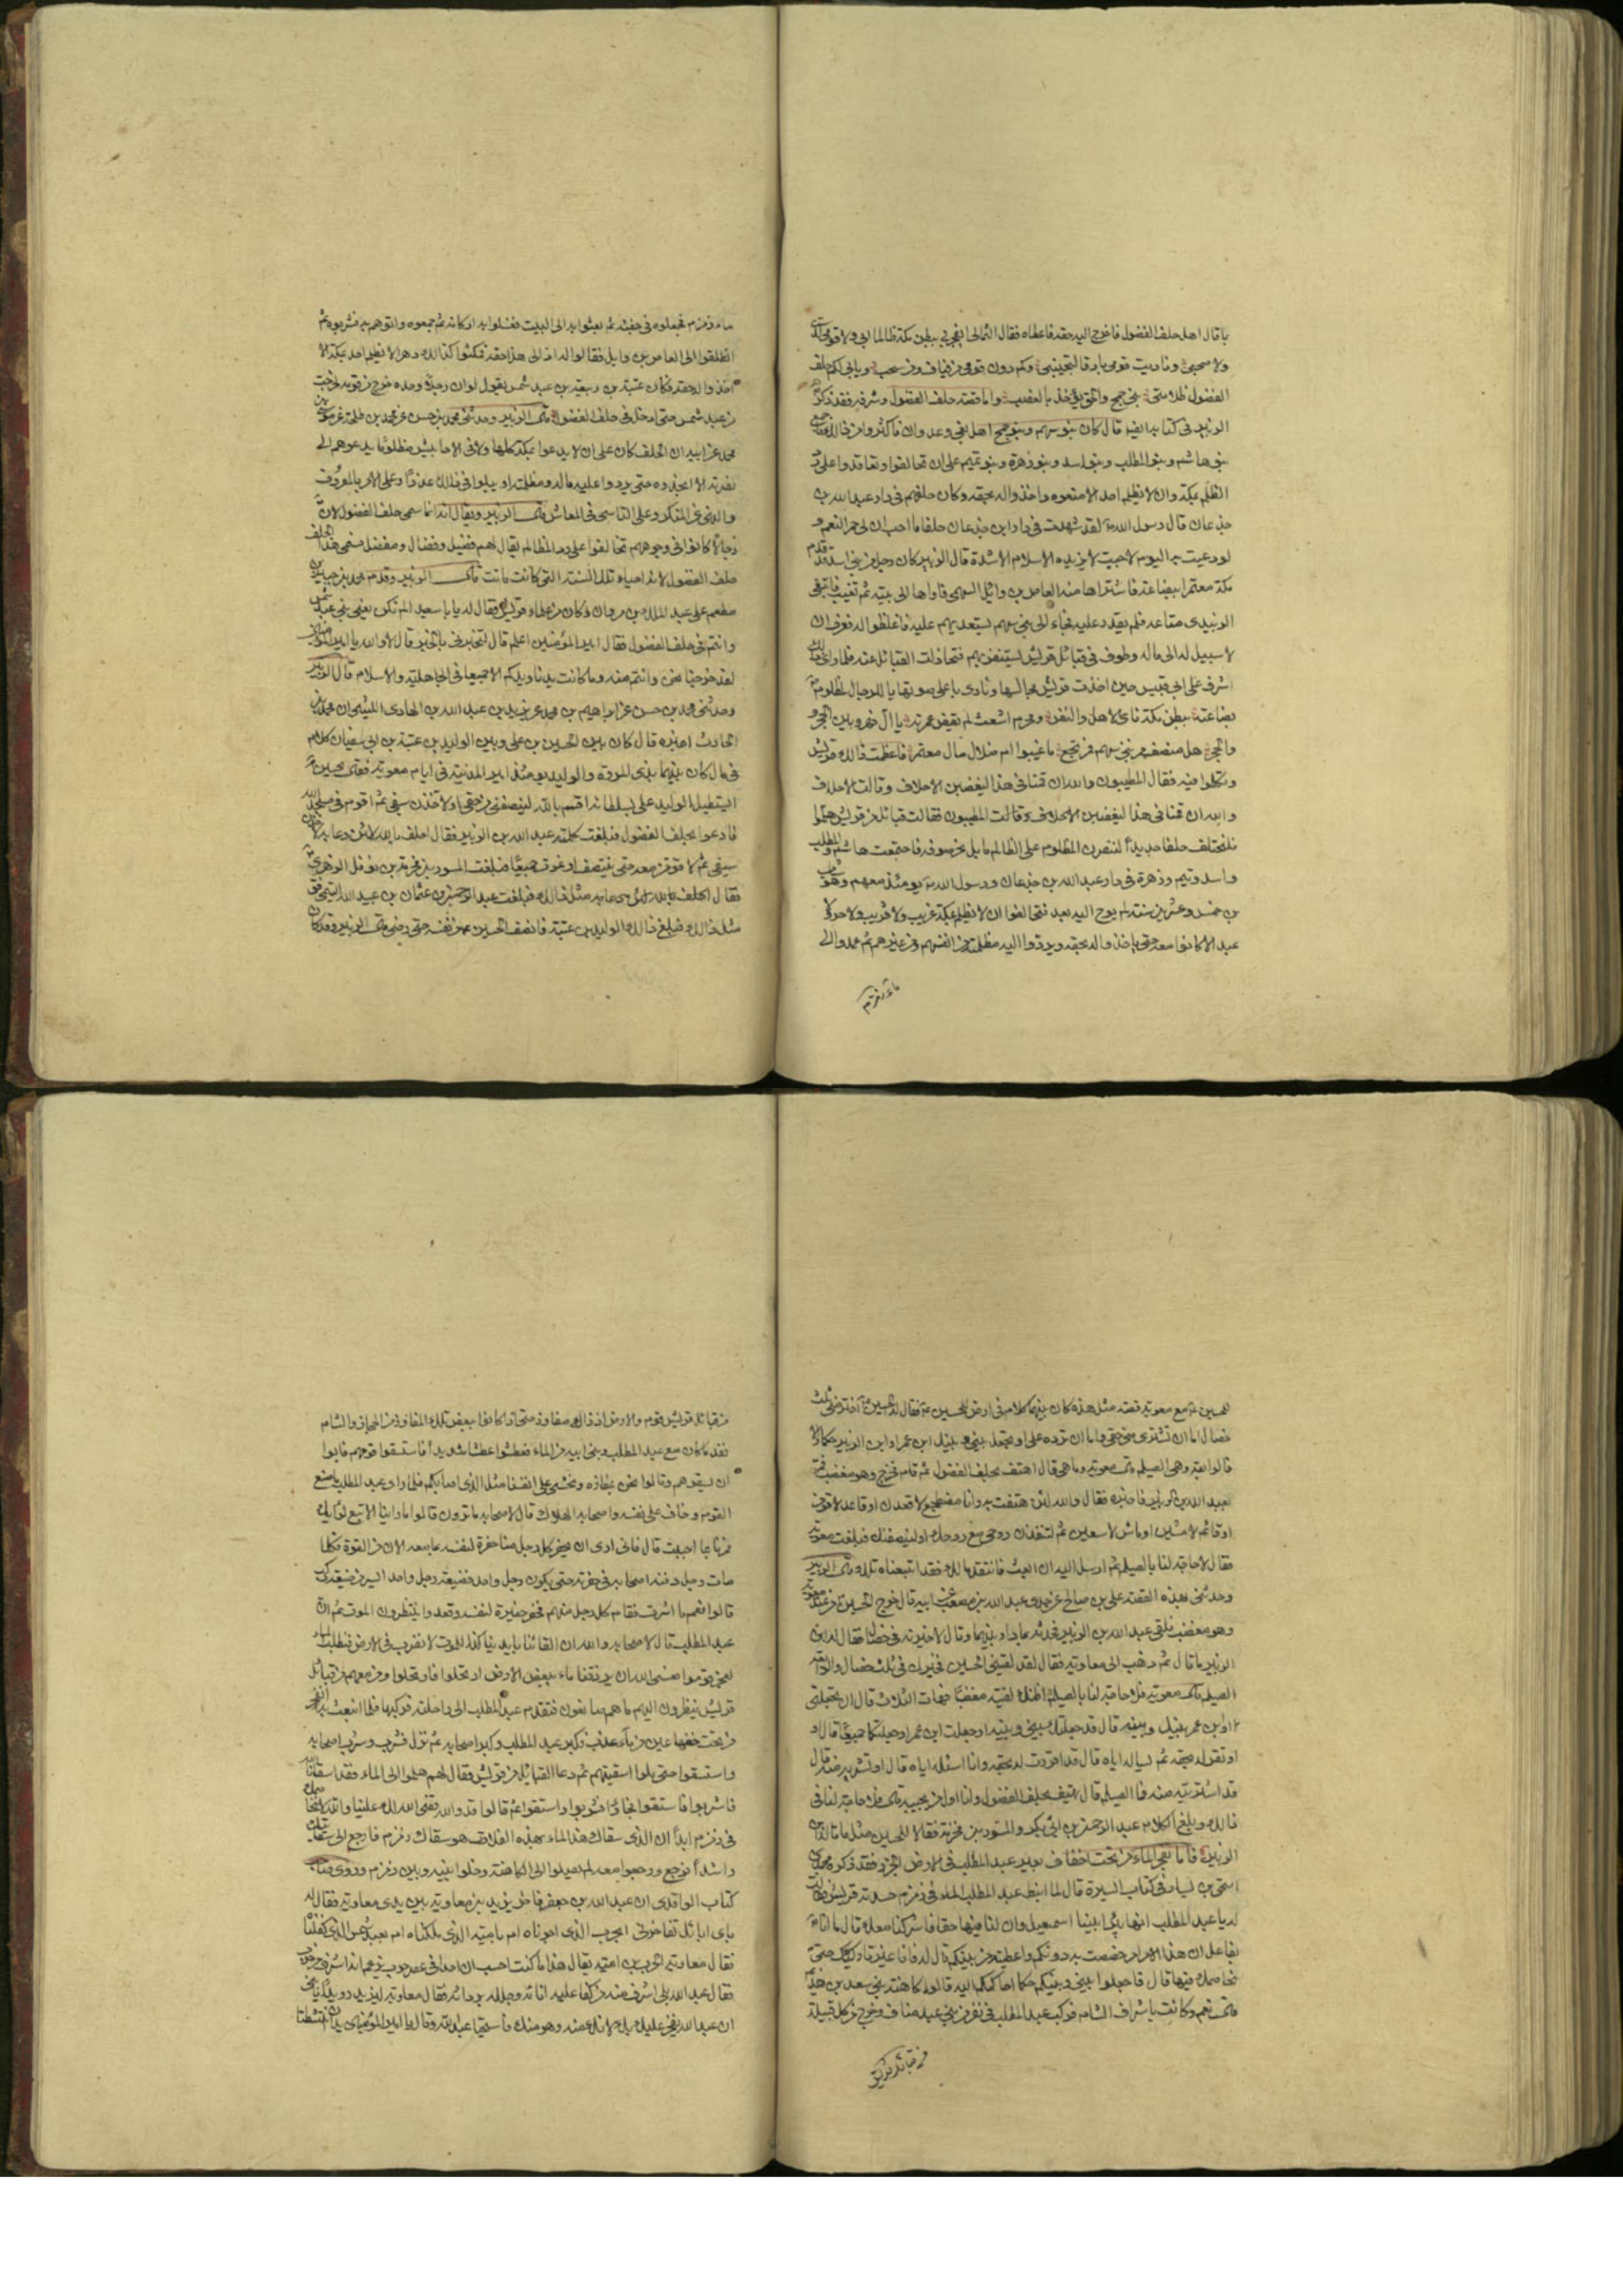 ما قال اهل حلف الفضول فاخرج اليه حقه فاعطاه فقال الثمالى ايفجر بى ببطن مكة ظالما ابى ولا قومى لدى
ولا صحبى وناديت قومى بارقا لتجيبنى وكم دون قومى من فياف ومن سهب ويابى لكم حلف
الفضول ظلامتى بنى جمح والحق يؤخذ بالغصب واما قصة حلف الفضول وشرفه فقد ذكر
الزبير فى كتابه ايضا قال كان بنو سهم وبنو جمح اهل بغى وعدوان فاكثروا من ذلك فاجمع
بنو هاشم وبنو المطلب وبنو اسد وبنو زهرة وبنو تميم على ان تحالفوا وتعاقدوا على رد
الظلم بمكة وان لا يظلم احد الا منعوه واخذوا له بحقه وكان حلفهم فى دار عبد الله بن
جدعان قال رسول الله لقد شهدت فى دار ابن جدعان حلفا ما احب ان لى حمر النعم و
لو دعيت به اليوم لاجبت لا يزيده الاسلام الا شدة قال الزبير كان رجل من بنى اسد قدم
مكة معتمرا ببضاعة فاشتراها منه العاص بن وائل السهمى فاواها الى بيته ثم تغيب فابتغى
الزبيدى متاعه فلم يقدر عليه فجاء الى بنى سهم يستعديهم عليه فاغلظوا له فعرف ان
لا سبيل له الى ماله وطوف فى قبائل قريش يستنفر بهم فتخاذلت القبائل عنه فلما راى ذلك
اشرف على ابى قبيس حين اخذت قريش مجالسها ونادى باعلى صوته يا للرجال لمظلوم
بضاعته ببطن مكة نائى الاهل والنفر ومحرم اشعث لم يقض عمرته يا آل فهر وبين الحجر و
والحجر هل منصف من بنى سهم فمرتجع ما غيبوا ام ضلال مال معتمر فاعظمت ذلك قريش
وتكلموا فيه فقال المطيبون والله ان قمنا فى هذا ليغضبن الاحلاف وقالت الاحلاف
والله ان قمنا فى هذا ليغضبن المطيبون فقالت قبائل من قريش هلموا
فلنحتلف حلفا جديدا لننصرن المظلوم على الظالم ما بل بحر صوفه فاجتمعت هاشم والمطلب
واسد وتيم وزهرة فى دار عبد الله بن جدعان ورسول الله يومئذ معهم وهو شاب
بن خمس وعشرين سنة لم يوح اليه بعد فتحالفوا ان لا يظلم بمكة غريب ولا قريب ولا حر ولا
عبد الا كانوا معه حتى ياخذوا له بحقه ويردوا اليه مظلمته من انفسهم ومن غيرهم ثم عمدوا الى
ماء زمزم
ماء زمزم فجعلوه فى جفنة ثم بعثوا به الى البيت فغسلوا به اركانه ثم جمعوه واتوهم به فشربوه ثم
انطلقوا الى العاص بن وايل فقالوا له اد الى هذا حقه فمكثوا كذلك دهرا لا يظلم احد بمكة الا
اخذوا له حقه فكان عتبة بن ربيعة بن عبد شمس يقول لو ان رجلا وحده خرج من قومه لخرجت
من عبد شمس حتى ادخل فى حلف الفضول قال الزبير وحدثنى محمد بن حسن عن محمد بن طلحة عن موسى بن
محمد عن ابيه ان الحلف كان على ان لا يدعوا بمكة كلها ولا فى الاحابيش مظلوما يدعوهم الى
نصرته الا انجدوه حتى يردوا عليه ماله ومظلمته او يبلوا فى ذلك عذرا وعلى الامر بالمعروف
والنهى عن المنكر وعلى التاسى فى المعاش قال الزبير ويقال انه انما سمى حلف الفضول لان
رجالا كانوا فى وجوههم تحالفوا على رد المظالم يقال لهم فضيل وفضال ومفضل فسمى هذا الحلف
حلف الفضول لانه احياء تلك السنة التى كانت ماتت قال الزبير وقدم محمد بن جبير بن
مطعم على عبد الملك بن مروان وكان من علماء قريش فقال له يا با سعيد الم نكن يعنى بنى عبد شمس
وانتم فى حلف الفضول فقال امير المؤمنين اعلم قال لتخبرنى بالحق قال لا والله يا امير المؤمنين
لقد خرجنا نحن وانتم منه وما كانت يدنا ويدكم الا جميعا فى الجاهلية والاسلام قال الزبير
وحدثنى محمد بن حسن عن ابراهيم بن محمد عن يزيد بن عبد الله بن الهادى الليثى ان محمد بن
الحارث اخبره قال كان بين الحسين بن على وبين الوليد بن عتبة بن ابى سفيان كلام
فى مال كان بينهما بذى المروة والوليد يومئذ امير المدينة فى ايام معوية فقال الحسين
ايستطيل الوليد على بسلطانه اقسم بالله لينصفنى من حقى او لآخذن سيفى ثم اقوم فى مسجد الله
فادعوا بحلف الفضول فبلغت كلمته عبد الله بن الزبير فقال احلف بالله لئن دعا به لاخذن
سيفى ثم لاقومن معه حتى ينتصف او نموت جميعا فبلغت المسور بن مخرمة بن نوفل الزهرى
فقال احلف بالله لئن دعا به مثل ذلك فبلغت عبد الرحمن بن عثمان بن عبيد الله التيمى فقال
مثل ذلك فبلغ ذلك الوليد بن عتبة فانصف الحسين من نفسه حتى رضى قال الزبير وقد كان
للحسين مع معوية قصة مثل هذه كان بينهما كلام فى ارض للحسين فقال له الحسين اختر منى ثلث
خصال اما ان تشترى منى حقى واما ان ترده على او تجعل بينى وبينك ابن عمر او ابن الزبير حكما والا
فالرابعة وهى الصيلم قال معوية وما هى قال اهتف بحلف الفضول ثم قام فخرج وهو مغضب فمر
بعبد الله بن الزبير فاخبره فقال والله لئن هتفت به وانا مضطجع لاقعدن او قاعد لاقومن
او قائم لامشين او ماش لاسعين ثم لتنفدن روحى مع روحك او لينصفنك فبلغت معوية
فقال لا حاجة لنا بالصيلم ثم ارسل اليه ان ابعث فانتقد مالك فقد ابتعناه منك قال الزبير
وحدثنى بهذه القصة على بن صالح عن جدى عبد الله بن مصعب عن ابيه قال خرج الحسين من عند معوية
وهو مغضب فلقى عبد الله بن الزبير فحدثه بما دار بينهما وقال لاخيرنه فى خصال فقال له ابن
الزبير ما قال ثم ذهب الى معاوية فقال لقد لقينى الحسين فخيرك فى ثلث خصال والرابعة
الصيلم قال معوية فلا حاجة لنا بالصيلم اظنك لقيته مغضبا فهات الثلاث قال ان تجعلنى
او ابن عمر بينك وبينه قال قد جعلتك بينى وبينه او جعلت ابن عمر او جعلتكما جميعا قال او
او تقر له بحقه ثم تساله اياه قال قد اقررت له بحقه وانا اسئله اياه قال او تشتريه منه قال
قد اشتريته منه فما الصيلم قال يهتف بحلف الفضول وانا اول من يجيبه قال فلا حاجة لنا فى
ذلك وبلغ الكلام عبد الرحمن بن ابى بكر والمسور بن مخرمة فقالا للحسين مثل ما قال ابن
الزبير فاما تفجر الماء من تحت اخفاف بعير عبد المطلب فى الارض الجرز فقد ذكره محمد بن
اسحق بن يسار فى كتاب السيرة قال لما انبط عبد المطلب الماء فى زمزم حسدته قريش فقالت
له يا عبد المطلب انها بئر ابينا اسمعيل وان لنا فيها حقا فاشركنا معك قال ما انا
بفاعل ان هذا الامر امر خصصت به دونكم واعطيته من بينكم قالوا له فانا غير تاركيك حتى
نخاصمك فيها قال فاجعلوا بينى وبينكم حكما احاكمكم اليه قالوا كاهنة بنى سعد بن هذيم
قال نعم وكانت باشراف الشام فركب عبد المطلب فى نفر من بنى عبد مناف وخرج من كل قبيلة
من قبائل قريش
من قبائل قريش قوم والارض اذ ذاك مفاوز حتى اذا كانوا ببعض تلك المفاوز بين الحجاز والشام
نفد ما كان مع عبد المطلب وبنى ابيه من الماء فعطشوا عطشا شديدا فاستسقوا قومهم فابوا
ان يسقوهم وقالوا نحن بمفازة ونخشى على انفسنا مثل الذى اصابكم فلما راى عبد المطلب ما صنع
القوم وخاف على نفسه واصحابه الهلاك قال لاصحابه ما ترون قالوا ما راينا الا تبع لرايك
فمرنا بما احببت قال فانى ارى ان يحفر كل رجل منا حفرة لنفسه بما معه الان من القوة فكلما
مات رجل دفنه اصحابه فى حفرته حتى يكون رجل واحد فضيعة رجل واحد ايسر من ضيعة ركب
قالوا نعم ما اشرت فقام كل رجل منهم فحفر حفيرة لنفسه وقعدوا ينتظرون الموت ثم ان
عبد المطلب قال لاصحابه والله ان القائنا بايدينا كذا للموت لا نضرب فى الارض فنطلب الماء
لعجز قوموا فعسى الله ان يرزقنا ماء ببعض الارض ارتحلوا فارتحلوا ومن معهم من قبائل
قريش ينظرون اليهم ما هم صانعون فتقدم عبد المطلب الى راحلته فركبها فلما انبعثت به انفجر
من تحت خفها عين من ماء عذب فكبر عبد المطلب وكبر اصحابه ثم نزل فشرب وشرب اصحابه
واستسقوا حتى ملوا اسقيتهم ثم دعا القبائل من قريش فقال لهم هلموا الى الماء فقد اسقانا الله
فاشربوا واستقوا فجاؤا فشربوا واستقوا ثم قالوا قد والله قضى الله لك علينا والله لا نخاصمك
فى زمزم ابدا ان الذى سقاك هذا الماء بهذه الفلاة هو سقاك زمزم فارجع الى سقايتك
راشدا فرجع ورجعوا معه لم يصلوا الى الكاهنة وخلوا بينه وبين زمزم وروى صاحب
كتاب الواقدى ان عبد الله بن جعفر فاخر يزيد بن معاوية بين يدى معاوية فقال له
باى ابائك تفاخرنى ابحرب الذى اجرناه ام بامية الذى ملكناه ام بعبد شمس الذى كفلناه
فقال معاوية الحرب بن امية يقال هذا ما كنت احسب ان احدا فى عصر حرب يزعم انه اشرف من حرب
فقال عبد الله بلى اشرف منه من كفا عليه انائه وجلله بردائه فقال معاوية ليزيد رويدا يا بنى
ان عبد الله يفخر عليك بك لانك منه وهو منك فاستحيا عبد الله وقال يا امير المؤمنين يدان انتشطتا